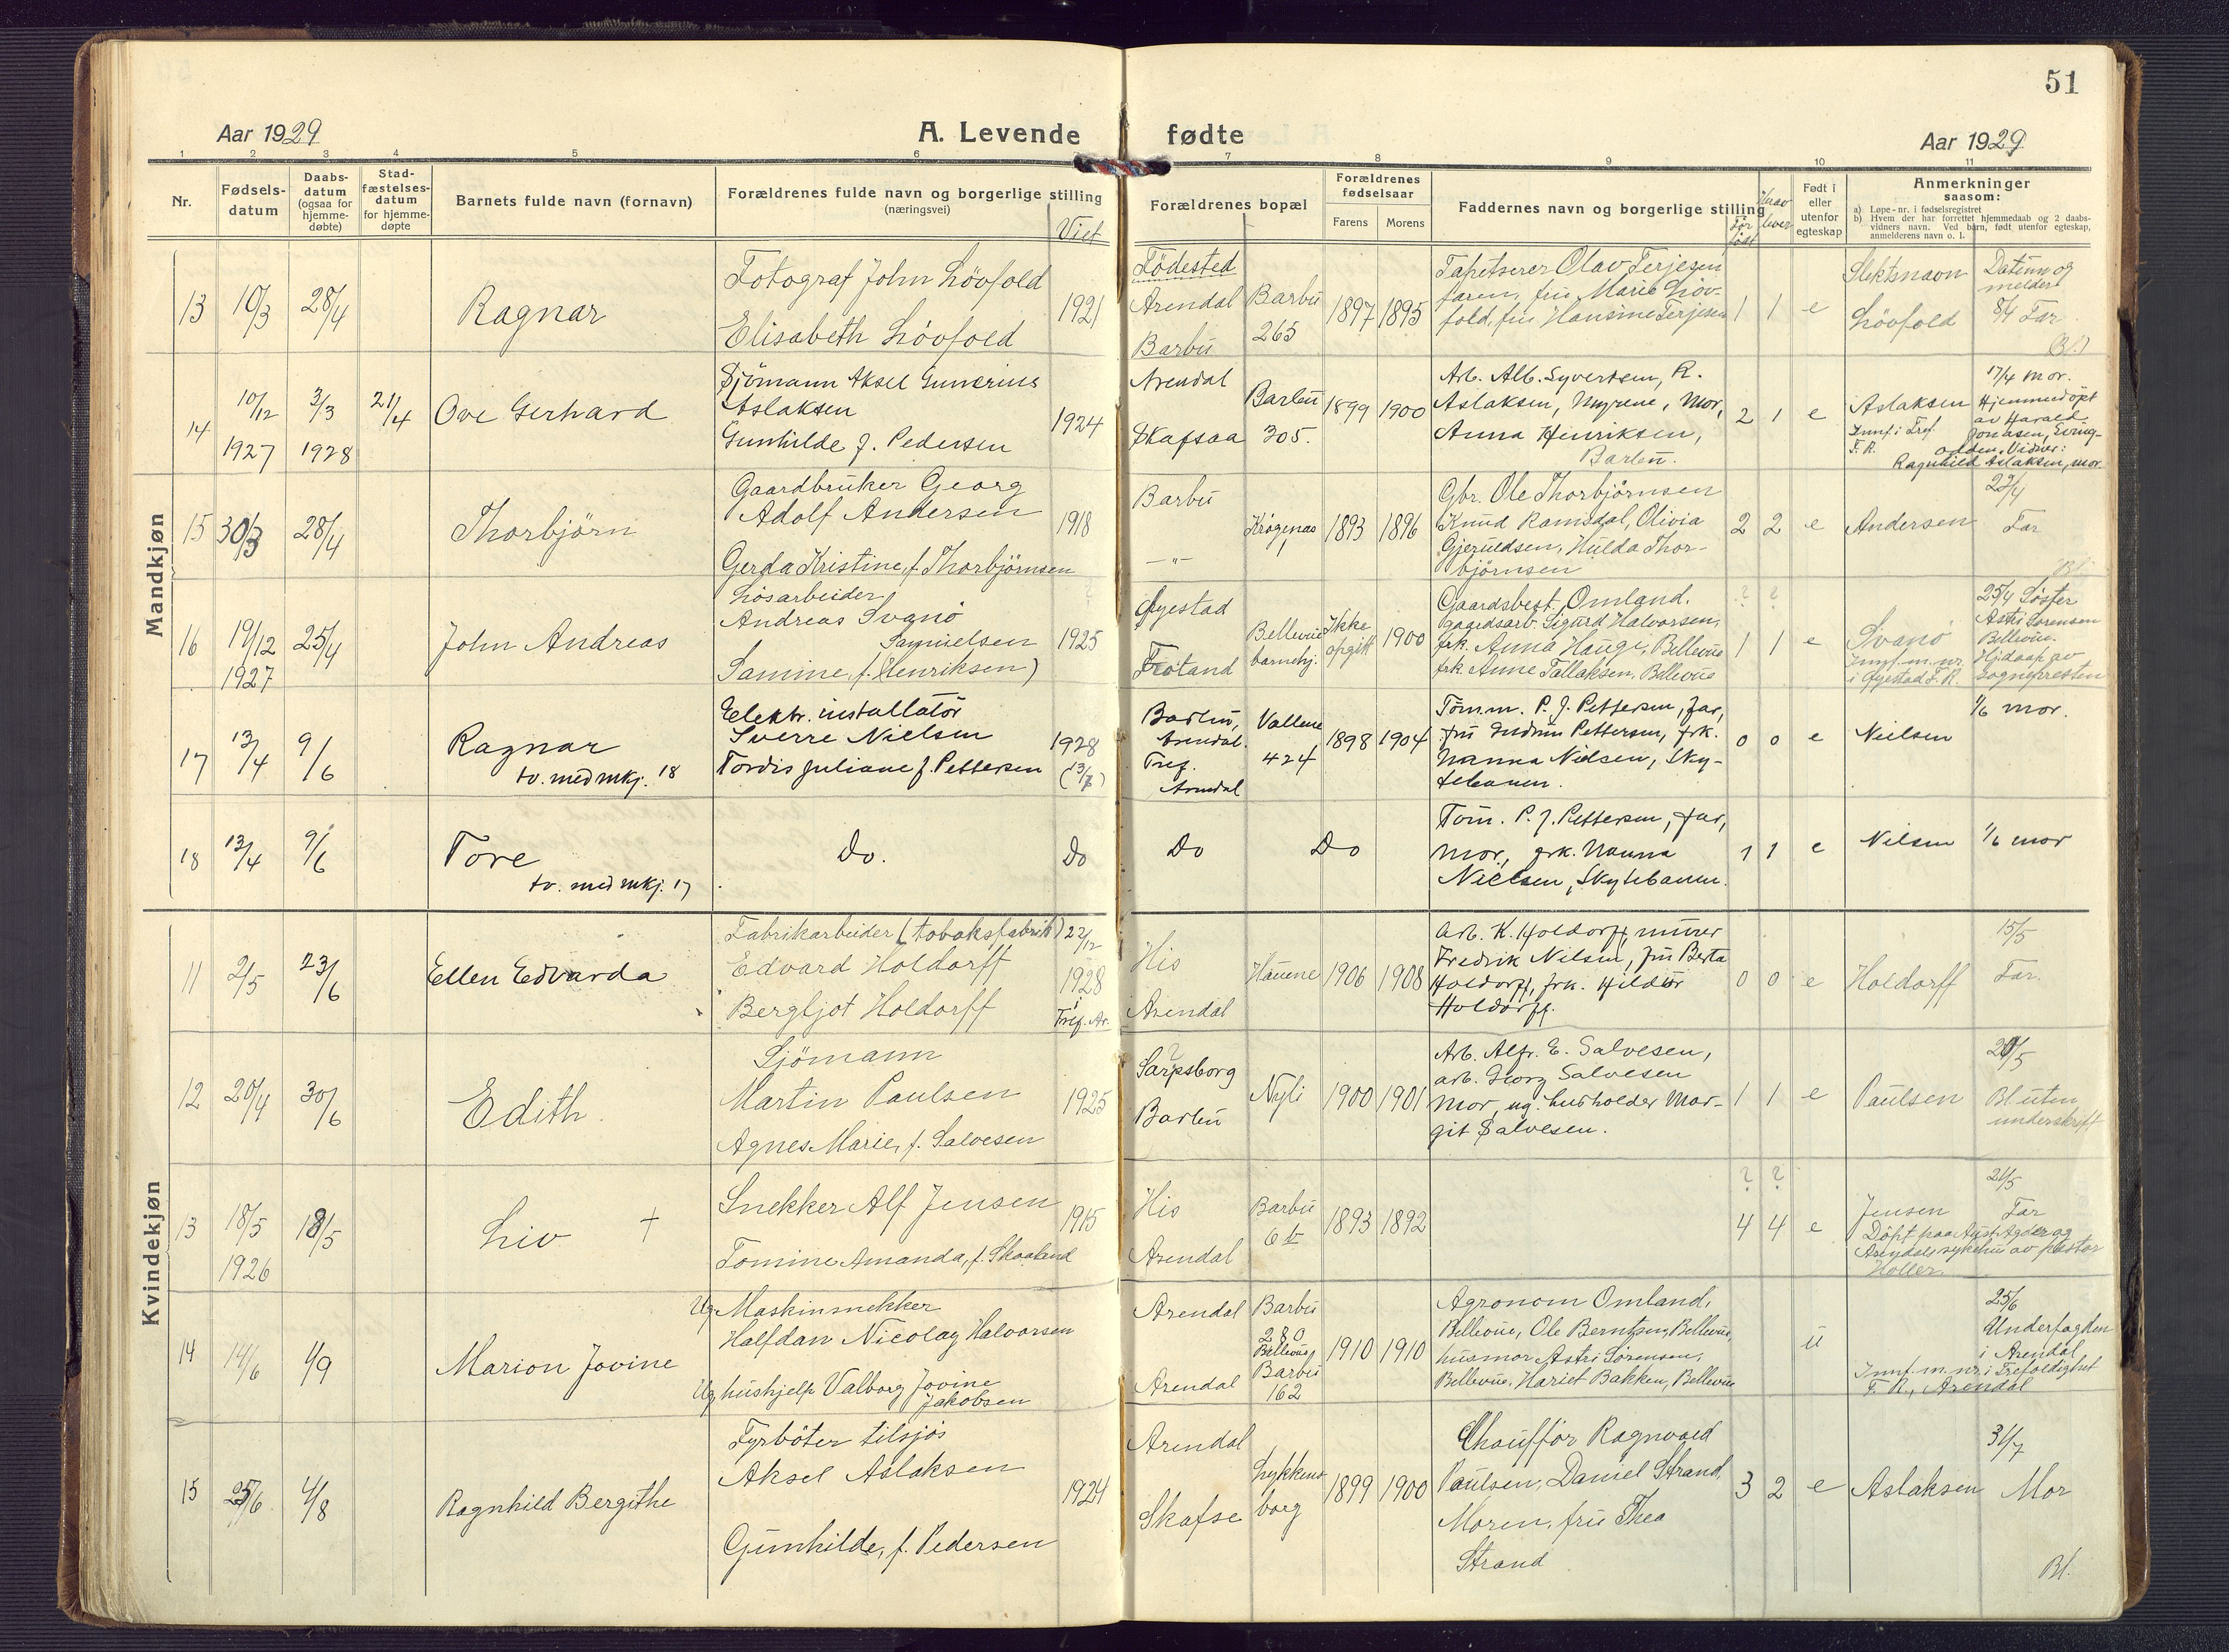 51
Aar 1929
A. Levende
fødte
Aar 1929
1 2 3 4 5 6 7 8 9 10 11
Nr.
Fødsels-
datum
Daabs-
datum
(ogsaa for
hjemme-
døbte)
Stad-
fæstelses-
datum
for hjemme-
døpte
Barnets fulde navn (fornavn)
Forældrenes fulde navn og borgerlige stilling
(næringsvei)
Viet
Forældrenes bopæl
Forældrenes
fødselsaar
Farens
Morens
Faddernes navn og borgerlige stilling
før
født
herav
lever
Født i
eller
utenfor
egteskap
Anmerkninger
saasom:
a) Løpe-nr. i fødselsregistret
b) Hvem der har forrettet hjemmedaab og 2 daabs-
vidners navn. Ved barn, født utenfor egteskap,
anmelderens navn o. l.
Mandkjøn
13
10/3
28/4
Ragnar
Fotograf John Lövfold
Elisabeth Lövfold
1921
Födested
Arendal
Barbu
Barbu
265
1897
1895
Tapetserer Olav Terjesen
faren, fru Marie Löv-
fold, fru Hansine Terjesen
1
1
e
Slektsnavn
Lövfold
Datum og
meldert
8/4 Far
Bl.
14
10/12
1927
3/3
1928
21/4
Ove Gerhard
Sjömann Aksel Gunerius
Aslaksen
Gunhilde f. Pedersen
1924
Arendal
Skafsaa
Barbu
305.
1899
1900
Arb. Alb. Syvertsen, R.
Aslaksen, Myrene, Mor,
Anna Henriksen,
Barbu.
2
1
e
Aslaksen
Innf. i Tref.
F. R.
17/4 mor.
Hjemmedöpt
av Harald
Jonasen, Eving-
odden. Vidner:
Ragnhild Aslaksen, mor.
15
30/3
28/4
Thorbjörn
Gaardbruker Georg
Adolf Andersen
Gerda Kristine, f. Thorbjörnsen
1918
Barbu
—"—
Krögenes
1893
1896
Gbr. Ole Thorbjörnsen
Knud Ramsdal, Olivia
Gjeruldsen, Hulda Thor-
björnsen
2
2
e
Andersen
22/4
Far
Bl.
16
19/12
1927
25/4
John Andreas
Lösarbeider
Andreas Svanö
Samuelsen
Samine, f. Henriksen)
1925
Øyestad
Froland
Bellevue
barnehj.
Ikke
opgitt
1900
Gaardsbest. Omland.
gaardsarb. Sigurd Halvorsen,
frk. Anna Hauge, Bellevue
frk Anne Tallaksen, Bellevue
? ?
1
1
e
Svanö
Innf. m. nr.
i Øyestad F. R.
25/4 Söster
Astri Sörensen
Bellevue.
Hjdaap av
sognepresten
17
13/4
9/6
Ragnar
tv. med mkj. 18
Elektr. installatör
Sverre Nielsen
Tordis Juliane f. Pettersen
1928
(13/7)
Barbu,
Arendal.
Tref.
Arendal
Vallene
424
1898
1904
Töm.m. P. J. Pettersen, far,
fru Gudrun Pettersen, frk.
Nanna Nielsen, Sky-
tebanen.
0
0
e
Nielsen
1/6 mor.
18
13/4
9/6
Tore
tv. med mkj. 17
Do.
Do
Do
Do
Töm. P. J. Pettersen, far,
Mor, frk. Nanna
Nielsen, Skytebanen.
1
1
e
Nielsen
1/6 mor
Kvindekjøn
11
2/5
23/6
Ellen Edvarda
Fabrikarbeider (tobaksfabrik)
Edvard Holdorff
Bergljot Holdorff
22/12
1928
i
Tref. Ar.
His
Arendal
Hauene
1906
1908
Arb. K. Holdorff, murer
Fredrik Nilsen, fru Berta
Holdorff, frk. Hildur
Holdorff.
0
0
e
Holdorff
15/5
Far.
12
20/4
30/6
Edith.
Sjömann
Martin Paulsen
Agnes Marie, f. Salvesen
1925
?
Sarpsborg
Barbu
Nyli
1900
1901
Arb. Alfr. E. Salvesen,
arb. Georg Salvesen
Mor, ug. husholder Mar-
git Salvesen.
1
1
e
Paulsen
20/5
Bl uten
underskrift
13
18/5
1926
18/5
Liv †
Snekker Alf Jensen
Tomine Amanda, f. Skaaland
1915
His
Arendal
Barbu
6 b
1893
1892
? ?
4
4
e
Jensen
21/5
Far
Döpt paa Aust-Agder og
Arendals sykehus av pastor
Holler.
14
14/6
1/9
Marion Jovine
Ug. Maskinsnekker
Halfdan Nicolay Halvorsen
Ug. hushjelp Valborg Jovine
Jakobsen
Arendal
Arendal
Barbu
280
Bellevue,
Barbu
162
1910
1910
Agronom Omland,
Bellevue, Ole Berntsen, Bellevue,
husmor Astri Sörensen,
Bellevue, Hariet Bakken, Bellevue
u
25/6
Underfogden
i Arendal
Innf. m. nr. i Trefoldighet
F. R., Arendal
15
25/6
4/8
Ragnhild Bergithe
Fyrböter tilsjös
Aksel Aslaksen
Gunhilde, f. Pedersen
1924
Arendal
Skafse
Lykkens-
borg
1899
1900
Chaufför Ragnvald
Paulsen, Daniel Strand,
Moren, fru Thea
Strand
3
2
e
Aslaksen
31/7
Mor
Bl.